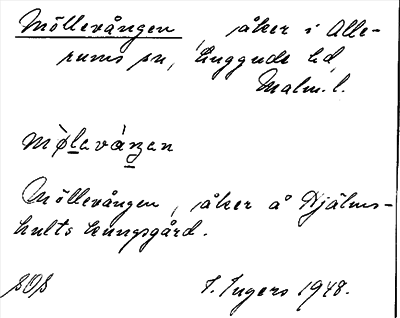 Möllevången, åker i Alle-
rums sn, Luggude hd,
Malm. l.
mø̀levåŋen
Möllevången, åker å Hjälms-
hults kungsgård.
I. Ingers 1948.